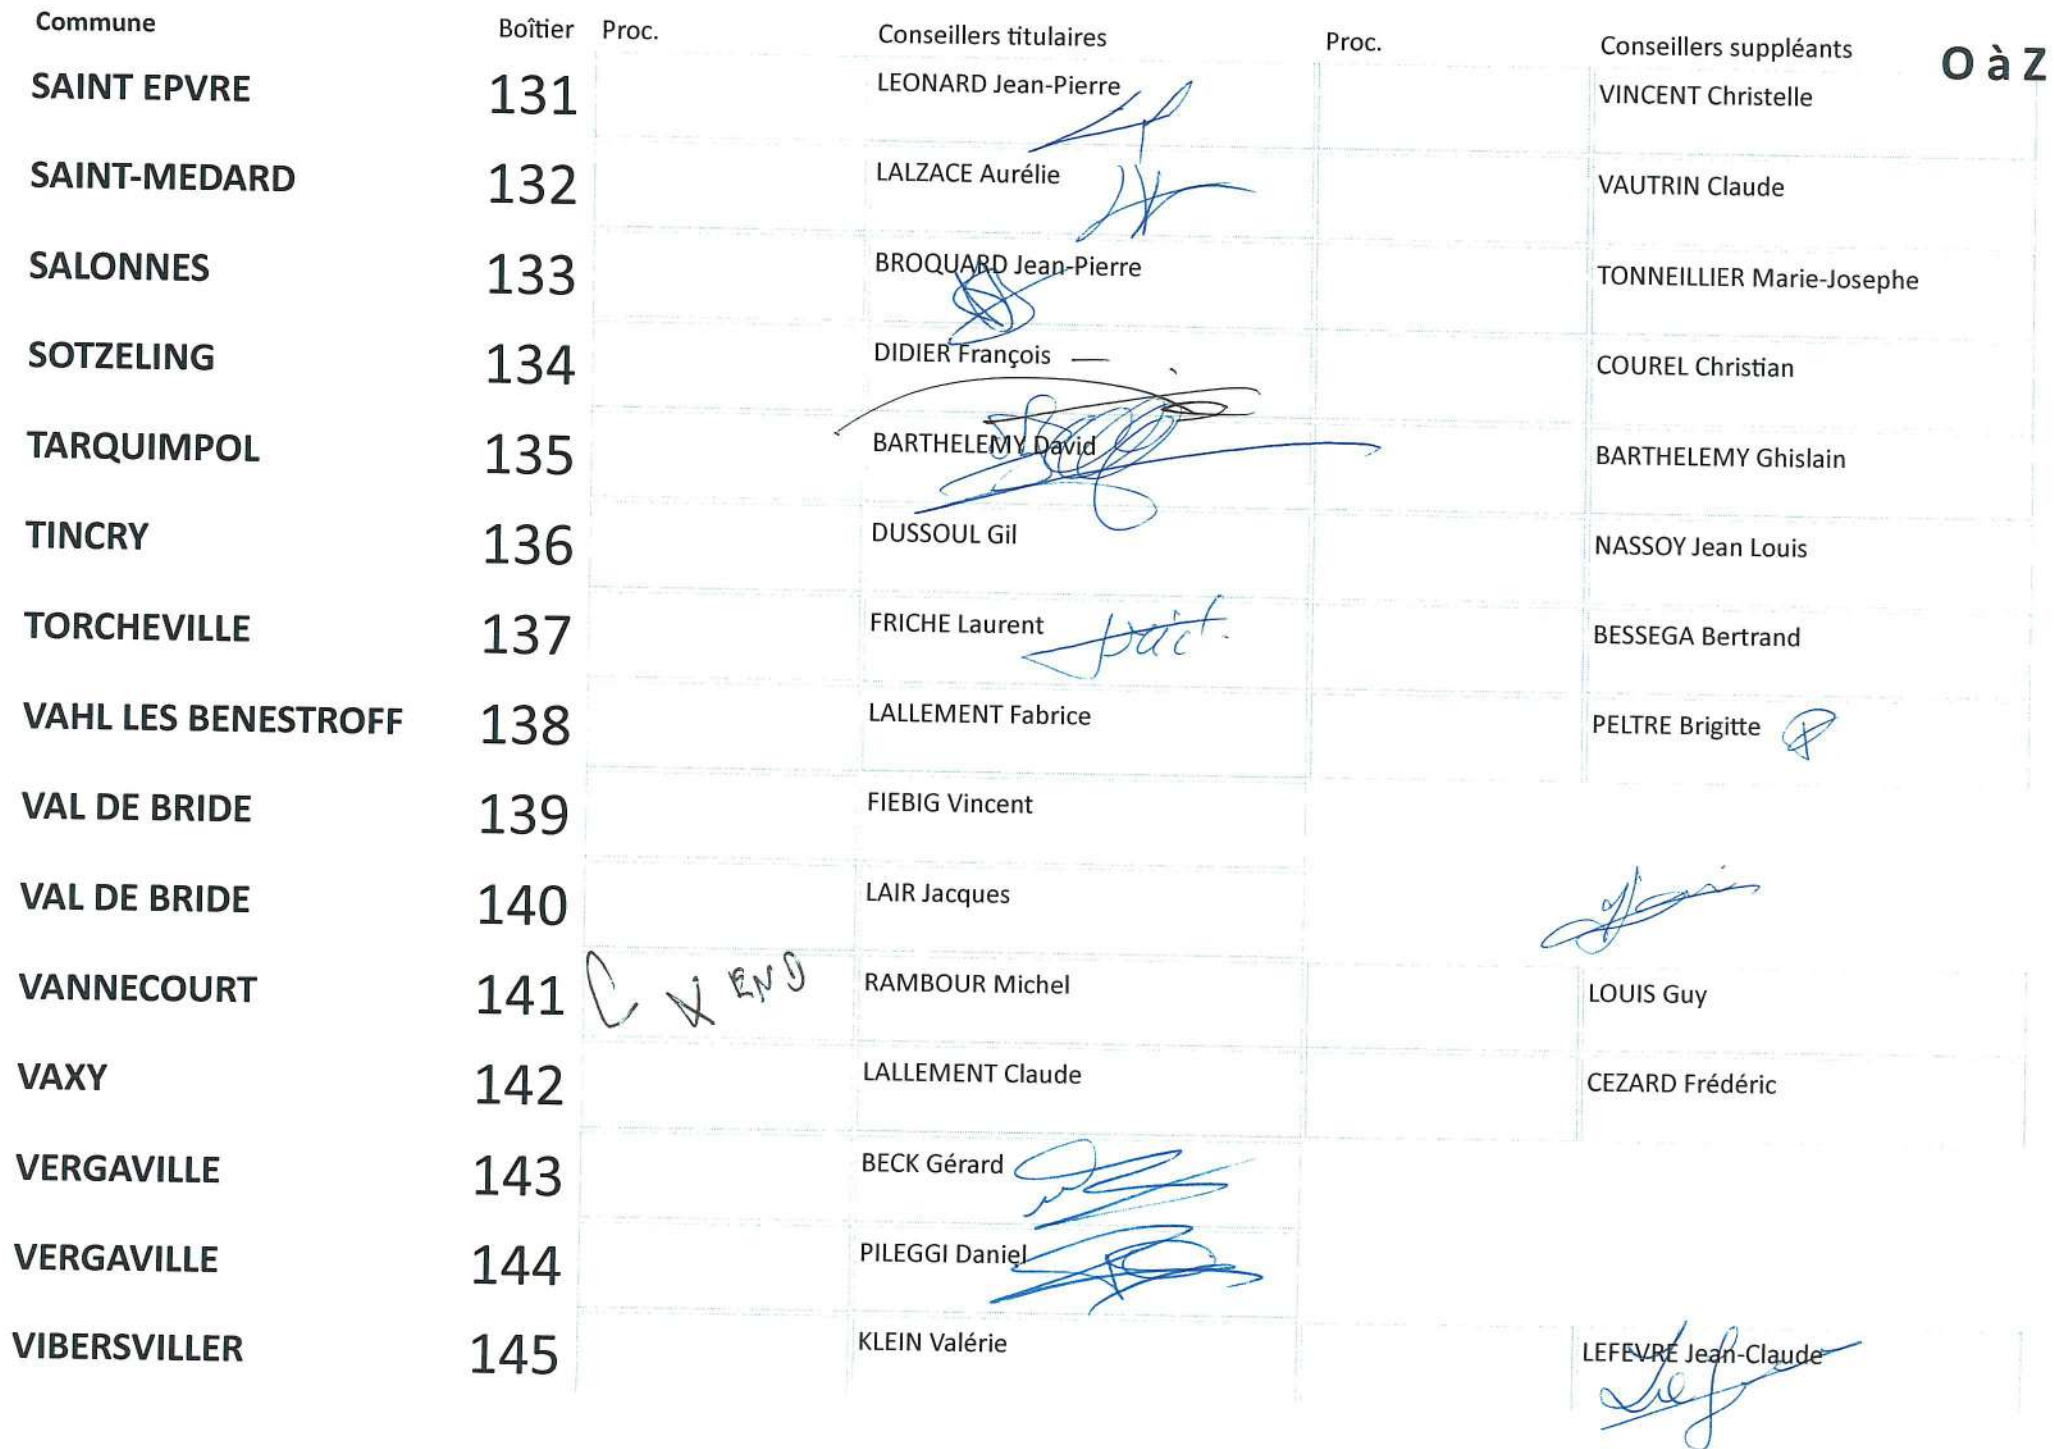 Commune Boîtier Proc. Conseillers titulaires Proc. Conseillers suppléants O à Z
SAINT EPVRE 131 LEONARD Jean-Pierre VINCENT Christelle
SAINT-MEDARD 132 LALZACE Aurélie VAUTRIN Claude
SALONNES 133 BROQUARD Jean-Pierre TONNEILLIER Marie-Josephe
SOTZELING 134 DIDIER François — COUREL Christian
TARQUIMPOL 135 BARTHELEMY David BARTHELEMY Ghislain
TINCRY 136 DUSSOUL Gil NASSOY Jean Louis
TORCHEVILLE 137 FRICHE Laurent BESSEGA Bertrand
VAHL LES BENESTROFF 138 LALLEMENT Fabrice PELTRE Brigitte
VAL DE BRIDE 139 FIEBIG Vincent
VAL DE BRIDE 140 LAIR Jacques
VANNECOURT 141 RAMBOUR Michel LOUIS Guy
VAXY 142 LALLEMENT Claude CEZARD Frédéric
VERGAVILLE 143 BECK Gérard
VERGAVILLE 144 PILEGGI Daniel
VIBERSVILLER 145 KLEIN Valérie LEFEVRE Jean-Claude